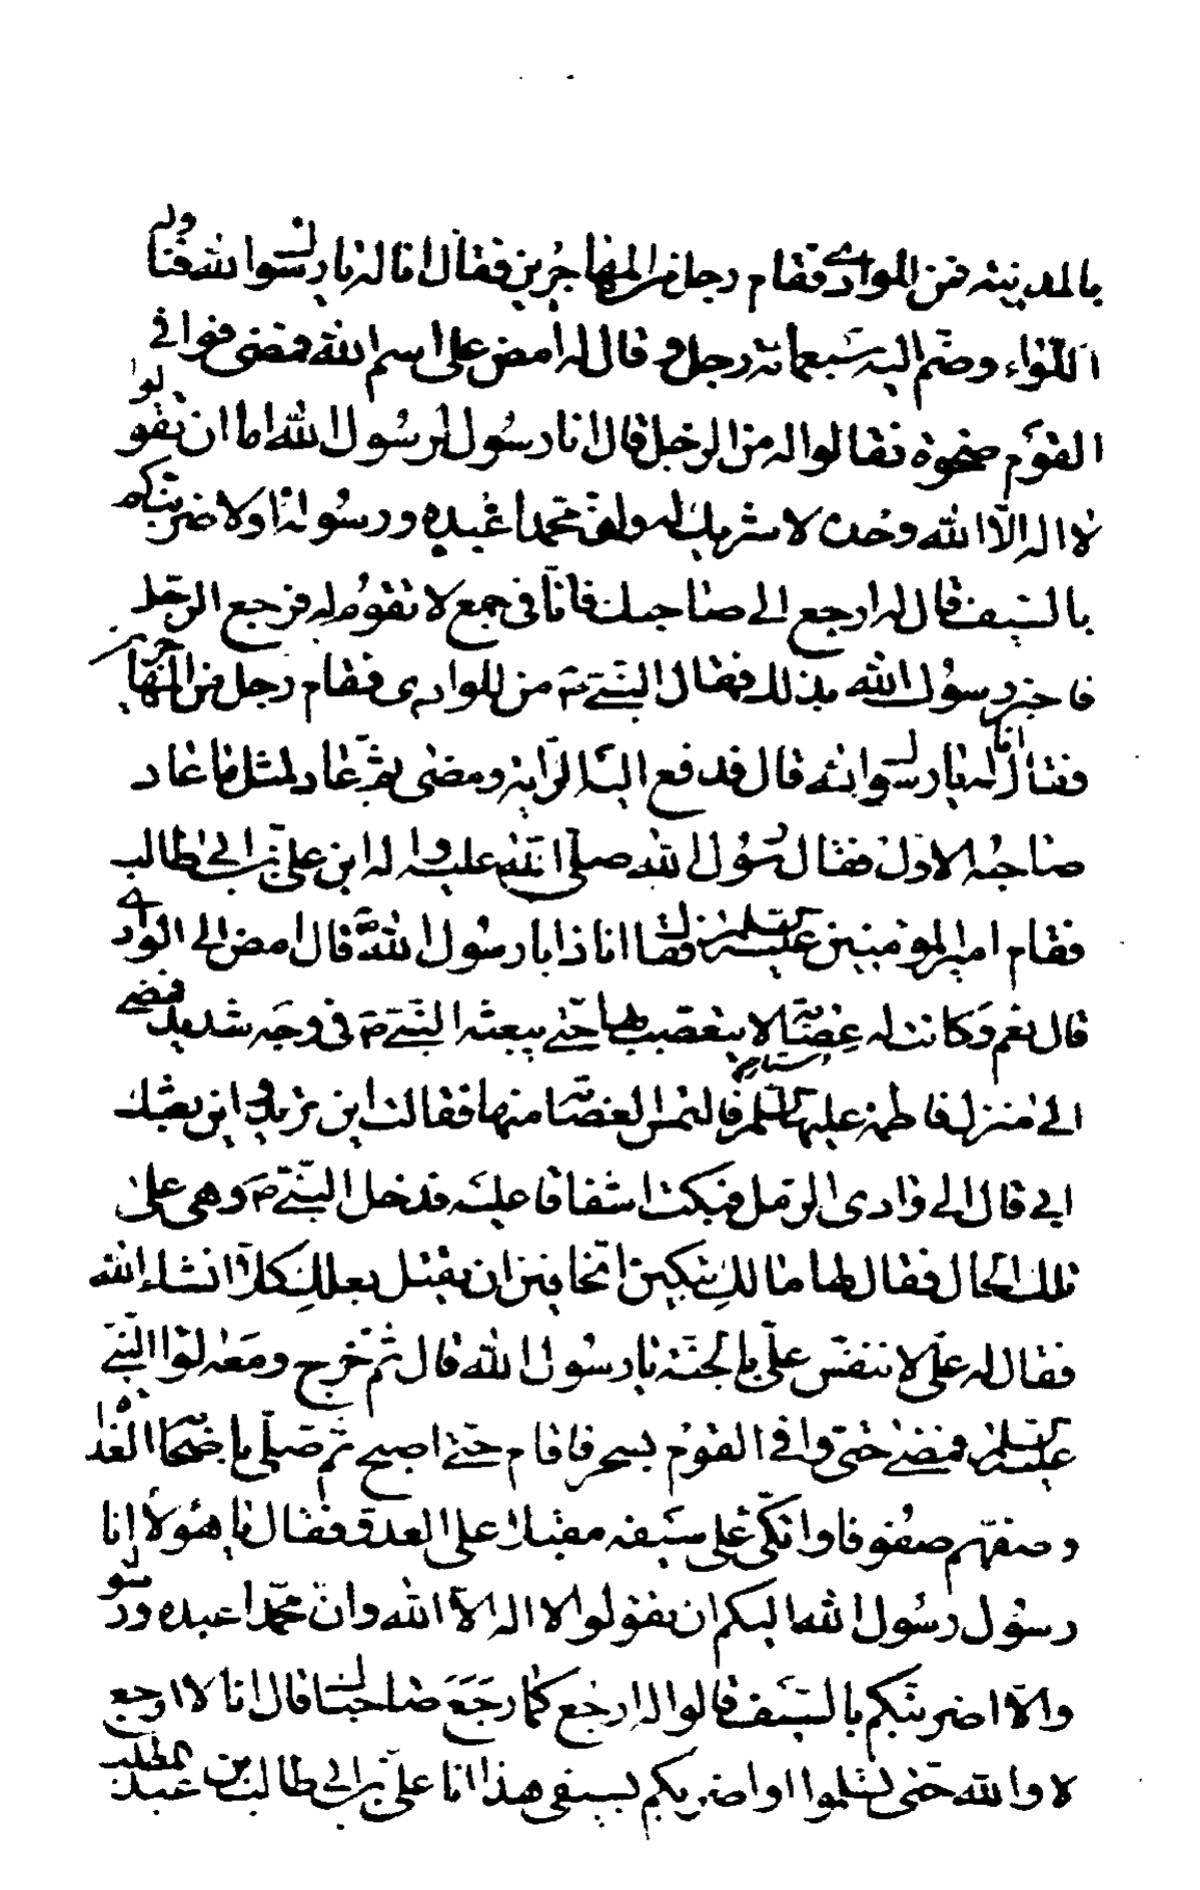 بالمدينة فمن للوادي فقام رجل من المهاجرين فقال انا له يا رسول الله فناوله
اللواء وضم اليه سبعمائة رجل وقال له امض على اسم الله فمضى فوافى
القوم ضحوة فقالوا له من الرجل قال انا رسول لرسول الله اما ان تقولوا
لا اله الا الله وحده لا شريك له وان محمدا عبده ورسوله او لاضربنكم
بالسيف قال له ارجع الى صاحبك فانا فى جمع لا تقوم له فرجع الرجل
فاخبر رسول الله بذلك فقال النبي ص من للوادى فقام رجل من المهاجرين
فقال انا له يا رسول الله قال فدفع اليه الراية ومضى ثم عاد لمثل ما عاد
صاحبه الاول فقال رسول الله صلى الله عليه واله اين علي بن ابي طالب
فقام امير المؤمنين عليه السلم فقال انا ذا يا رسول الله قال امض الى الوادي
قال نعم وكانت له عصابة لا يتعصب بها حتى يبعثه النبي ص فى وجه شديد فمضى
الى منزل فاطمة عليها السلم فالتمس العصابة منها فقالت اين تريد واين بعثك
ابي قال الى وادى الرمل فبكت اشفاقا عليه فدخل النبي ص وهى على
تلك الحال فقال لها ما لك تبكين اتخافين ان يقتل بعلك كلا انشاء الله
فقال له على لا تنفس علي بالجنة يا رسول الله قال ثم خرج ومعه لوا النبي
عليه السلم فمضى حتى وافى القوم بسحر فاقام حتى اصبح ثم صلى باصحابه الغداة
وصفهم صفوفا واتكى على سيفه مقبلا على العدو فقال يا هؤلاء انا
رسول رسول الله اليكم ان تقولوا لا اله الا الله وان محمدا عبده ورسوله
والا اضربنكم بالسيف قالوا له ارجع كما رجع صاحباك قال انا لا ارجع
لا والله حتى تسلموا او اضربكم بسيفى هذا انا علي بن ابي طالب بن عبد المطلب